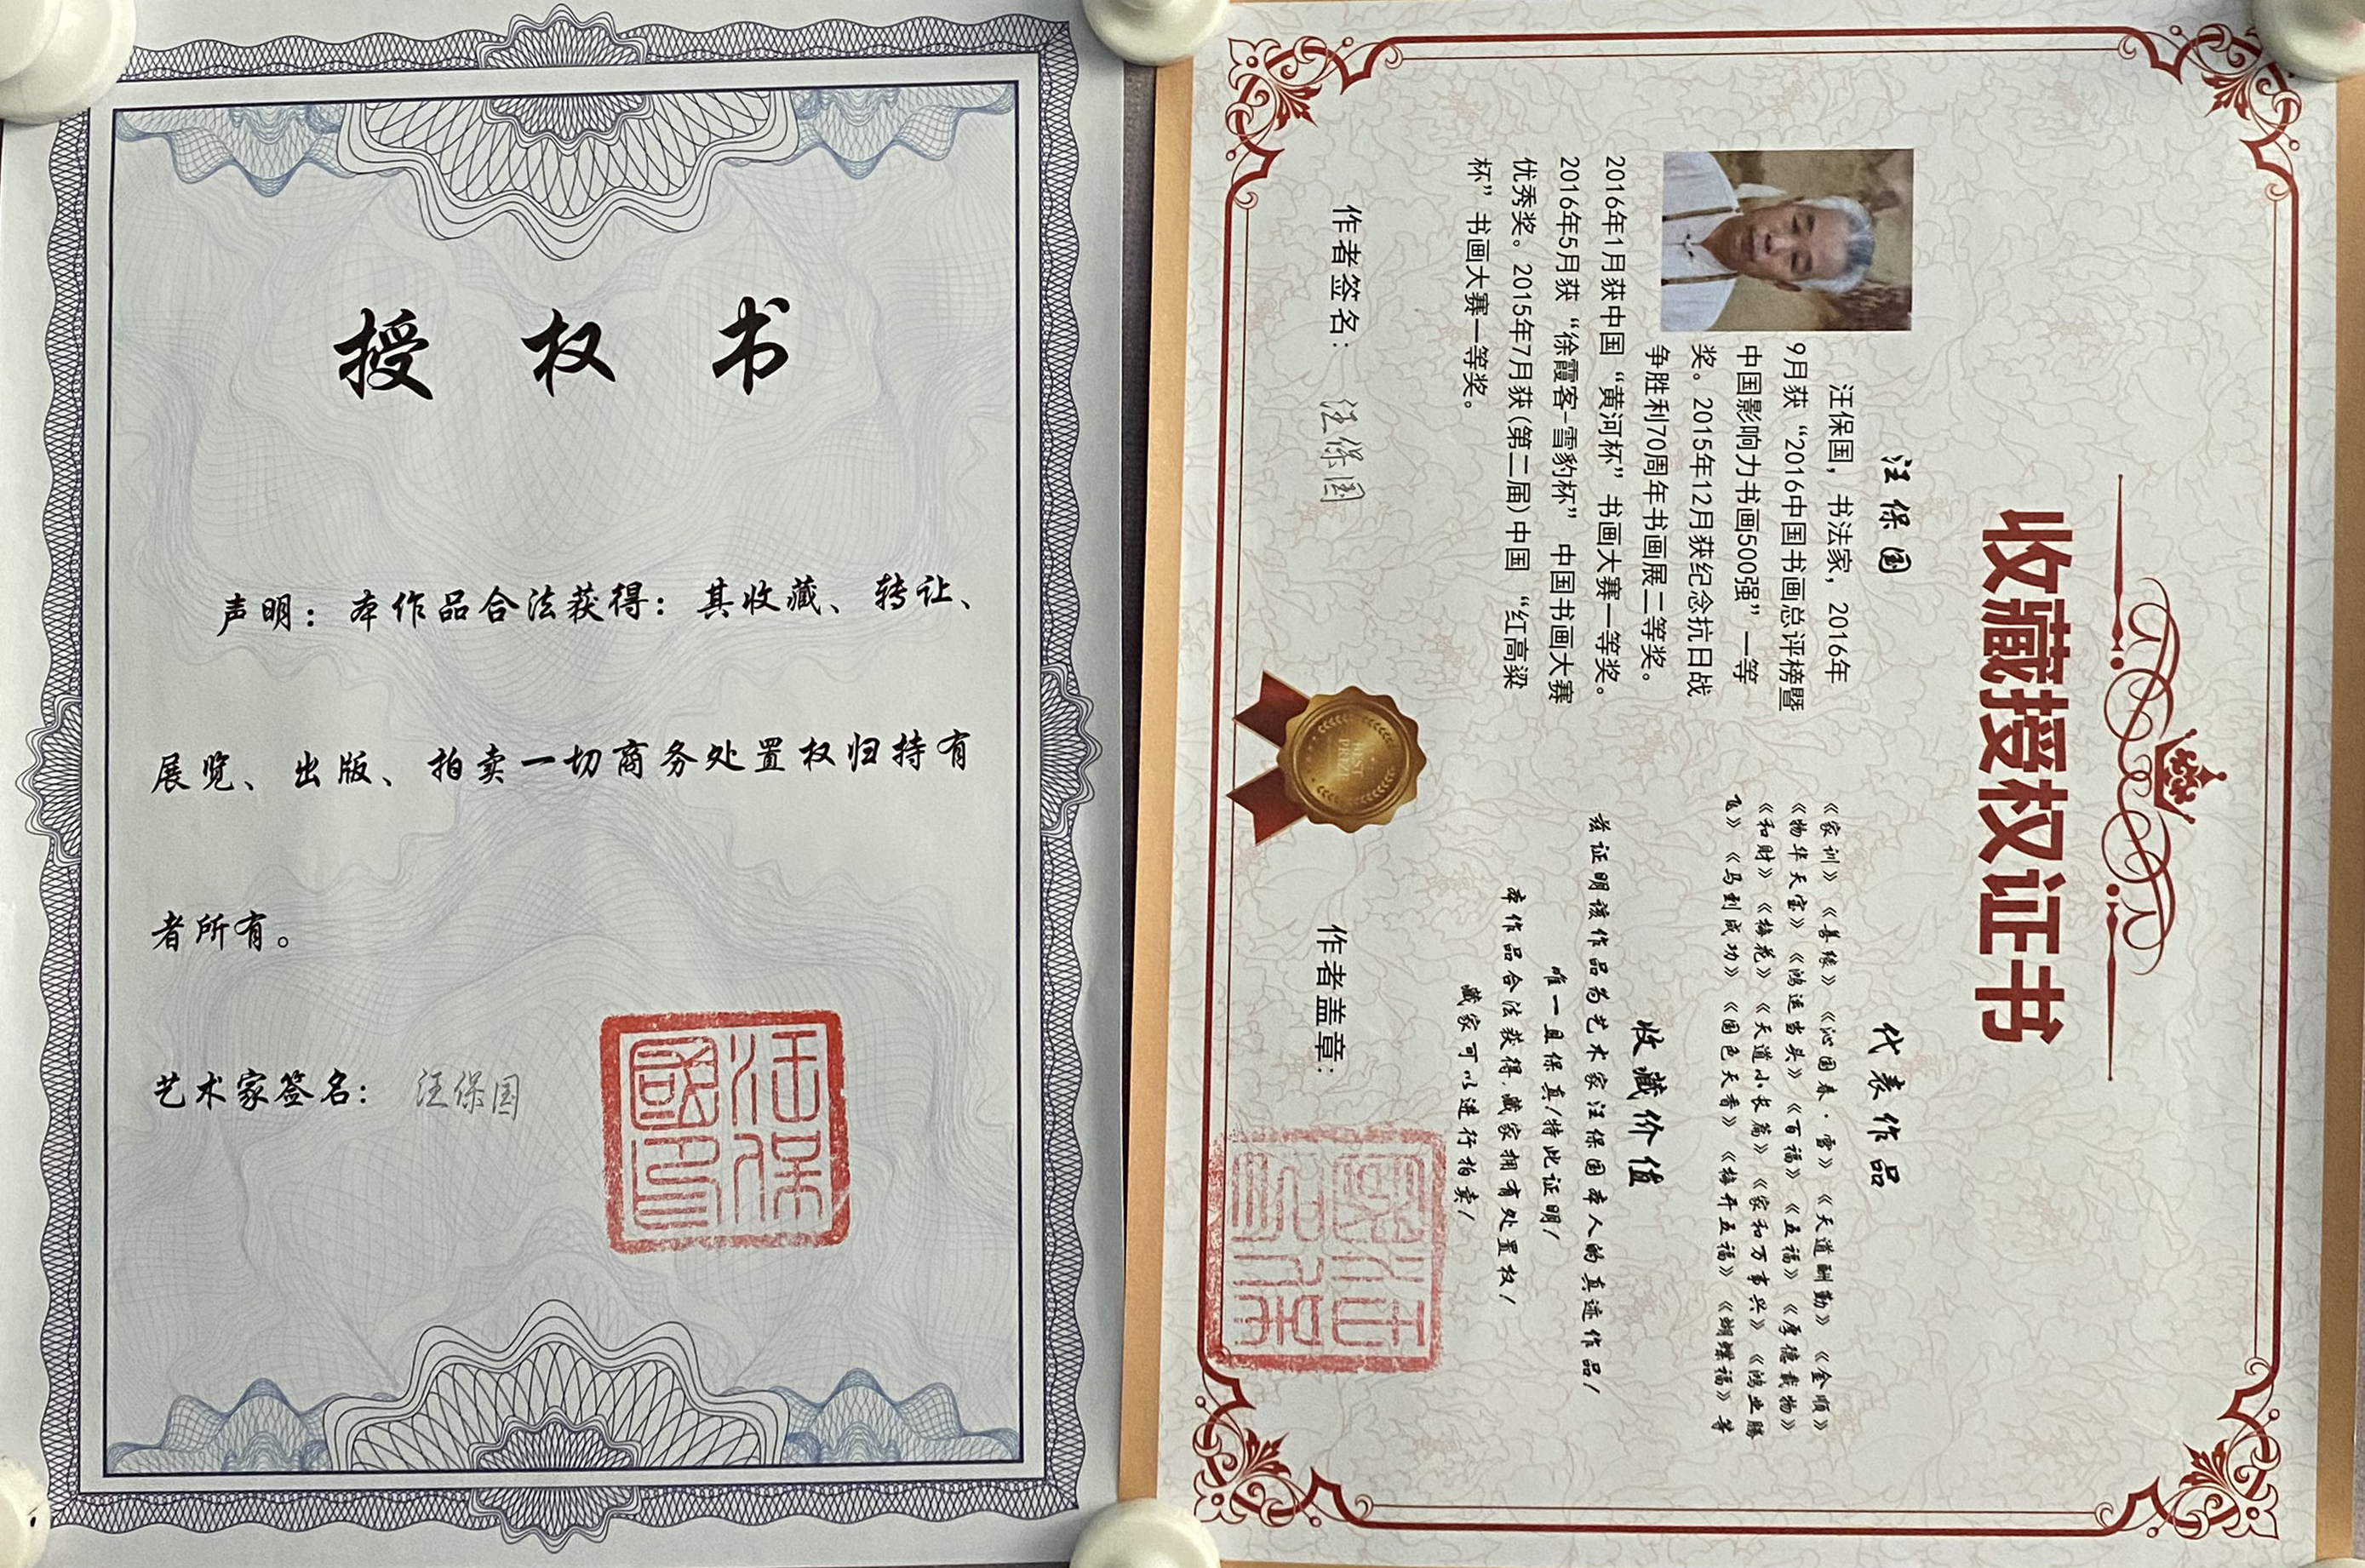 授权书
声明：本作品合法获得：其收藏、转让、
展览、出版、拍卖一切商务处置权归持有
者所有。
艺术家签名：汪保国
汪保國印
收藏授权证书
汪保国
汪保国，书法家，2016年
9月获“2016中国书画总评榜暨
中国影响力书画500强”一等
奖。2015年12月获纪念抗日战
争胜利70周年书画展二等奖。
2016年1月获中国“黄河杯”书画大赛一等奖。
2016年5月获“徐霞客-雪豹杯”中国书画大赛
优秀奖。2015年7月获(第二届)中国“红高粱
杯”书画大赛一等奖。
作者签名：汪保国
BEST
PRIZE
代表作品
《家训》《善缘》《沁园春·雪》《天道酬勤》《金顺》
《物华天宝》《鸿运当头》《百福》《五福》《厚德载物》
《和财》《梅花》《天道小长篇》《家和万事兴》《鸿业腾
飞》《马到成功》《国色天香》《梅开五福》《蝴蝶福》等
收藏价值
兹证明该作品为艺术家汪保国本人的真迹作品！
唯一且保真！特此证明！
本作品合法获得，藏家拥有处置权！
藏家可以进行拍卖！
作者盖章：
汪保國印